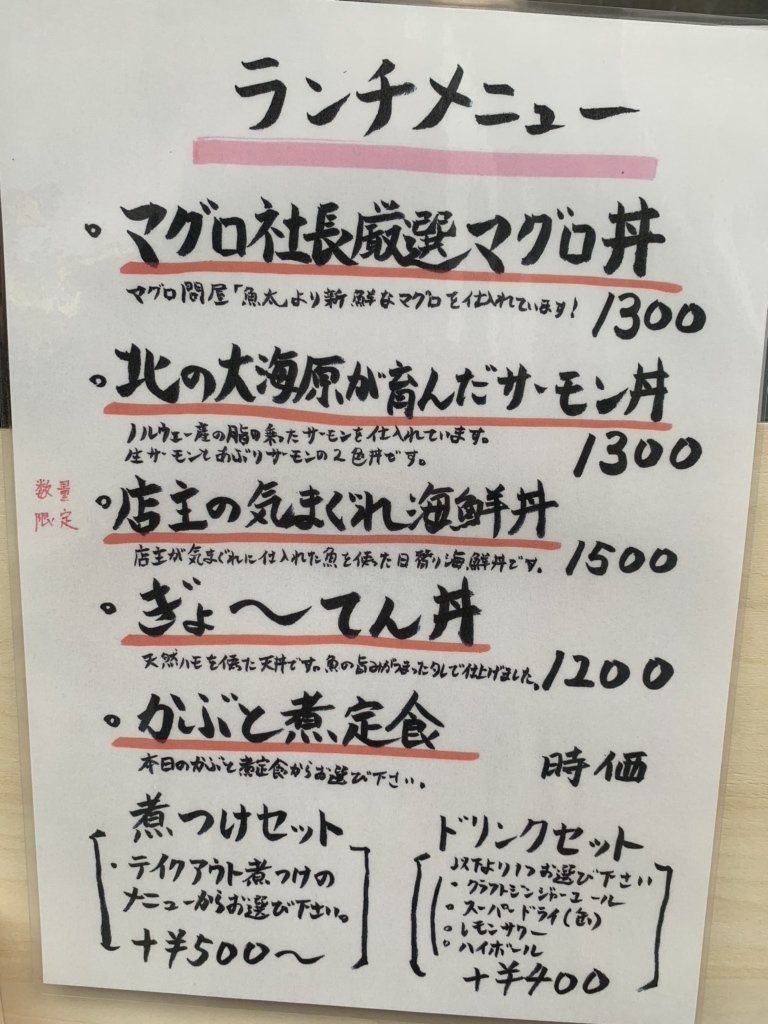 ランチメニュー
。マグロ社長厳選マグロ丼
マグロ問屋「魚太」より新鮮なマグロを仕入れています! 1300
。北の大海原が育んだサーモン丼
ノルウェー産の脂の乗ったサーモンを仕入れています。
生サーモンとあぶりサーモンの2色丼です。 1300
数量
限定
。店主の気まぐれ海鮮丼
店主が気まぐれに仕入れた魚を使った日替り海鮮丼です。 1500
。ぎょ〜てん丼
天然ハモを使った天丼です。魚の旨みがつまったタレで仕上げました。 1200
。かぶと煮定食
本日のかぶと煮定食からお選び下さい。 時価
煮つけセット
・テイクアウト煮つけの
メニューからお選び下さい。
+¥500〜
ドリンクセット
以下より1つお選び下さい
・クラフトジンジャーエール
。スーパードライ(缶)
。レモンサワー
。ハイボール
+¥400